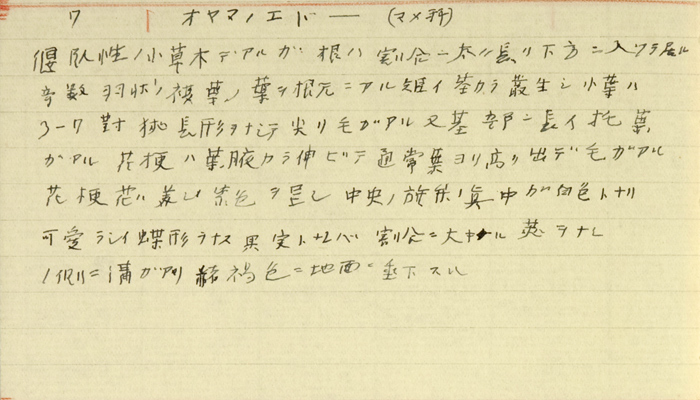 7 オヤマノエドー (マメ科)
偃臥性ノ小草本デアルガ 根ハ 割合ニ太ク長ク下方ニ入ツテ居ル
奇数羽状ノ複葉ノ葉ヲ根元ニアル短イ茎カラ叢生シ 小葉ハ
3-7対 狭長形ヲナシテ尖リ毛ガアル 又基部ニ長イ托葉
ガアル 花梗ハ葉腋カラ伸ビテ 通常葉ヨリ高ク出デ毛ガアル
花梗 花ハ 紫色ヲ呈シ 中央ノ旗弁ノ真中ガ白色トナリ
可愛ラシイ蝶形ヲナス 果実トナレバ 割合ニ大ナル 莢ヲナシ
ノ側ニ溝ガアリ 褐色ニ地面ニ垂下スル